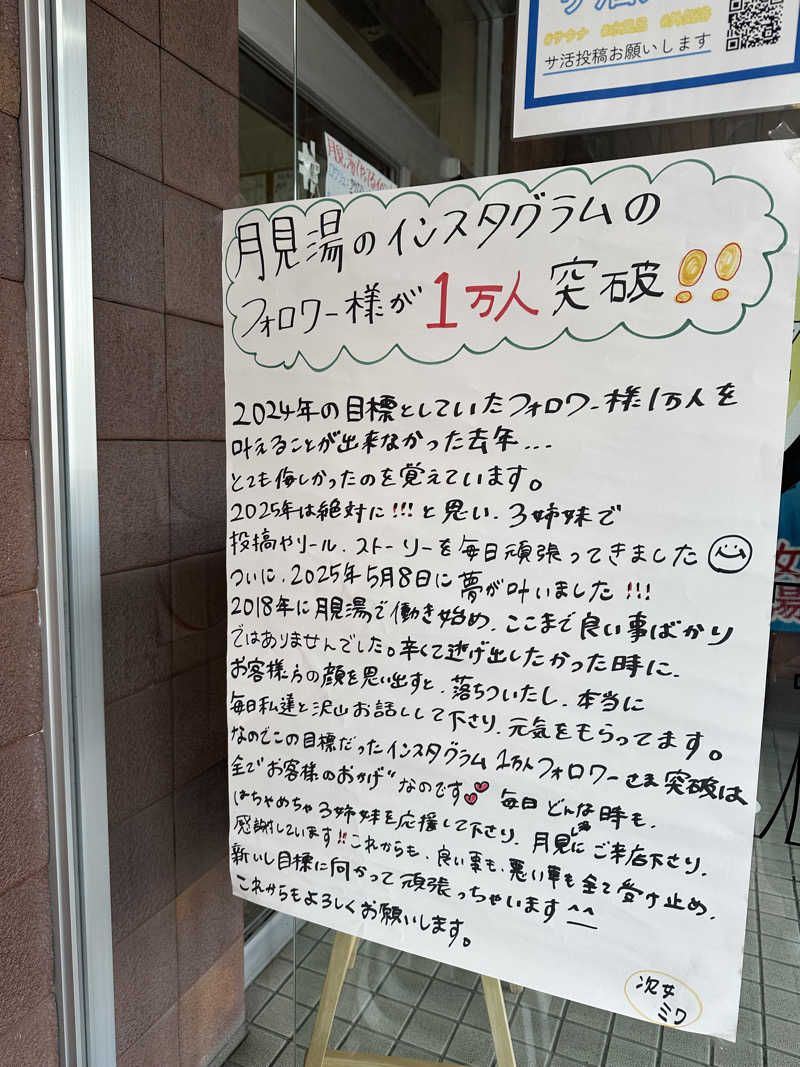 #サウナ
サ活投稿お願いします
月見湯のインスタグラムの
フォロワー様が1万人突破!!
2024年の目標としていたフォロワー様1万人を
叶えることが出来なかった去年...
とても悔しかったのを覚えています。
2025年は絶対に!!!と思い、3姉妹で
投稿やリール、ストーリーを毎日頑張ってきました
ついに、2025年5月8日に夢が叶いました!!!
2018年に月見湯で働き始め、ここまで良い事ばかり
ではありませんでした。辛くて逃げ出したかった時に、
お客様方の顔を思い出すと、落ちついたし、本当に
毎日私達と沢山お話しして下さり、元気をもらってます。
なのでこの目標だったインスタグラム1万人フォロワーさま突破は
全て"お客様のおかげ"なのです💕 毎日どんな時も、
はちゃめちゃ3姉妹を応援して下さり、月見湯にご来店下さり、
感謝しています!!これからも、良い事も、悪い事も全て受け止め、
新いし目標に向かって頑張っちゃいます^^
これからもよろしくお願いします。
次女
ミワ